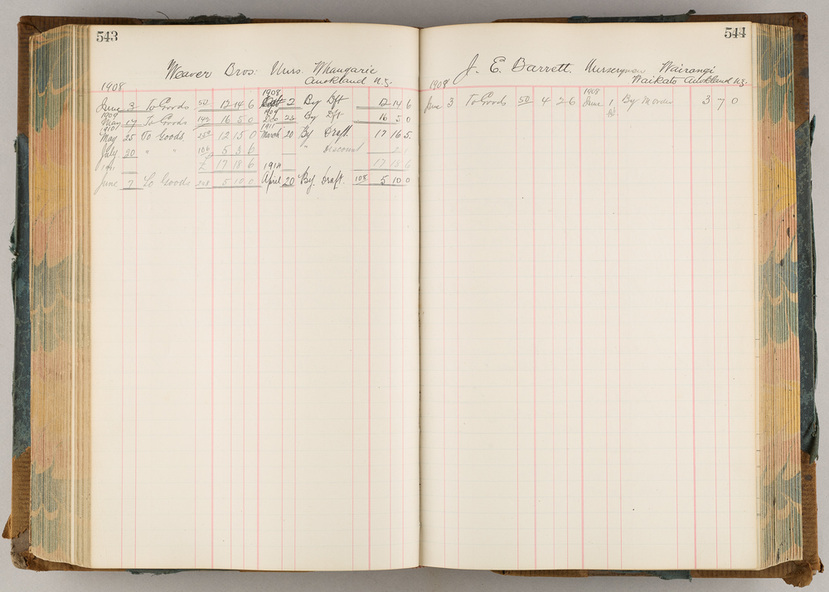 543
Weaver Bros: Nurs. Whangarie
Auckland N.Z.
1908
1908
June 3 To Goods 52 12 14 6 2 By Dft 12 14 6
1909
May 17 To Goods 16 5 0 By Dft 16 5 0
1911
May 25 To Goods 12 15 0 March 20 By Draft 17 16 5
July 20 " " 106 5 3 6 " Discount
£ 17 18 6 17 18 6
June 7 To Goods 5 10 0 April 20 By Draft 108 5 10 0
544
J. E. Barrett. Nurseryman Wairangi
Waikato Auckland N.Z.
1908
1908
June 3 To Goods 52 4 2 6 June 1 By Money 3 7 0